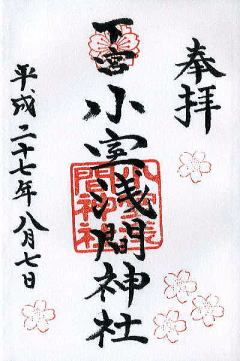 奉拝
下宮
小室浅間神社
平成二十七年八月七日
小室浅
間神社